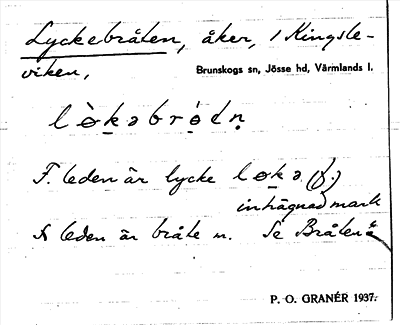 Lyckebråten, åker, i Kingsle-
viken,
Brunskogs sn, Jösse hd, Värmlands l.
lò̱kəbró̱tn̥
F. leden är lycke lo̱kə (f.)
inhägnad mark
S leden är bråte m. Se Bråten
P. O. GRANÉR 1937.